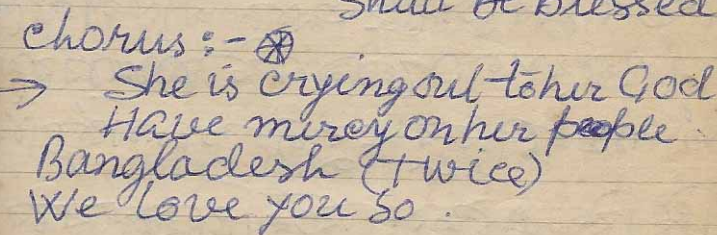 Shall be blessed
chorus :- ⊛
→ She is crying out to her God
Have mercy on her people
Bangladesh (twice)
We love you so.